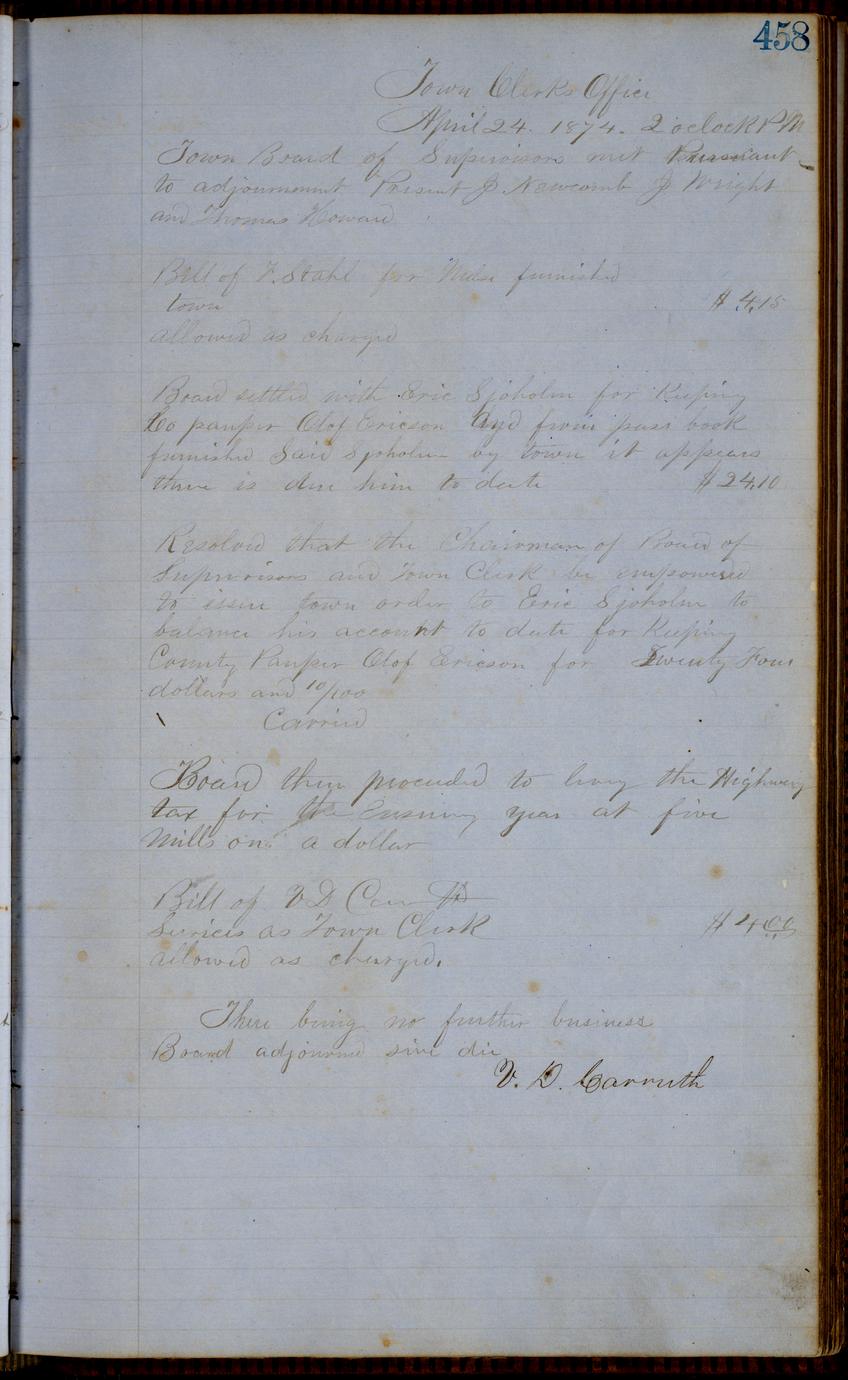 458
Town Clerks Office
April 24. 1874. 2 oclock PM
Town Board of Supervisors met Pursuant
to adjournment Present J. Newcomb J Wright
and Thomas Howard
Bill of F. Stahl for Mdse furnished
town $ 4.15
allowed as charged
Board settled with Eric Sjoholm for Keeping
Co pauper Olof Ericson and from pass book
furnished Said Sjoholm by town it appears
there is due him to date $ 24.10
Resolved that the Chairman of Board of
Supervisors and Town Clerk be empowered
to issue town order to Eric Sjoholm to
balance his account to date for Keeping
County Pauper Olof Ericson for Twenty Four
dollars and 10/100
Carried
Board then proceeded to levy the Highway
tax for the Ensuing year at five
Mills on a dollar
Bill of V D Carruth
Services as Town Clerk $ 4.00
allowed as charged.
There being no further business
Board adjourned sine die
V. D. Carruth